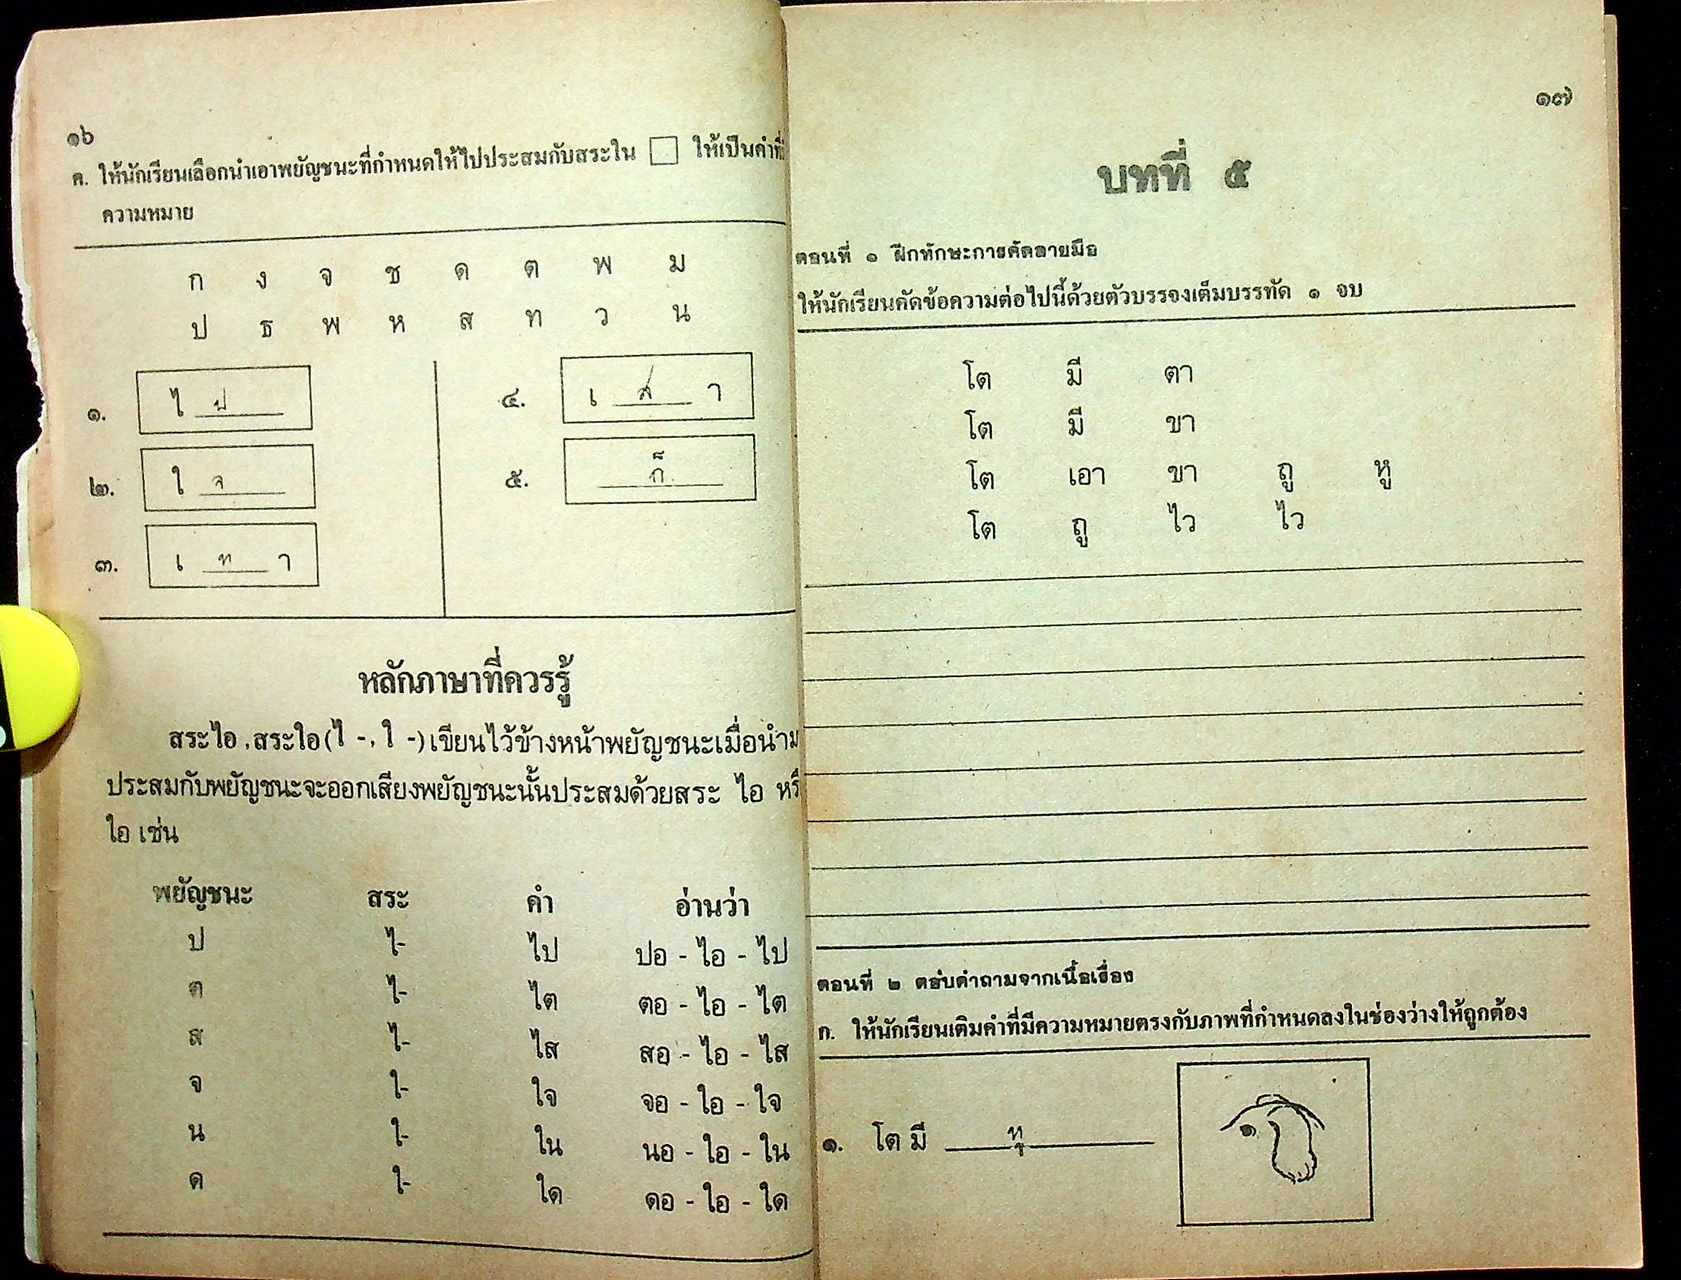 ๑๖
ค. ให้นักเรียนเลือกนำเอาพยัญชนะที่กำหนดให้ไปประสมกับสระใน ให้เป็นคำที่
ความหมาย
ก ง จ ช ด ต พ ม
ป ธ พ ห ส ท ว น
๑. ไ ป
๒. ใ จ
๓. เ ท า
๔. เ ส า
๕. ก็
หลักภาษาที่ควรรู้
สระไอ,สระใอ(ไ -, ใ -)เขียนไว้ข้างหน้าพยัญชนะเมื่อนำม
ประสมกับพยัญชนะจะออกเสียงพยัญชนะนั้นประสมด้วยสระ ไอ หรื
ใอ เช่น
พยัญชนะ สระ คำ อ่านว่า
ป ไ- ไป ปอ - ไอ - ไป
ต ไ- ไต ตอ - ไอ - ไต
ส ไ- ไส สอ - ไอ - ไส
จ ใ- ใจ จอ - ใอ - ใจ
น ใ- ใน นอ - ใอ - ใน
ด ใ- ใด ดอ - ใอ - ใด
๑๗
บทที่ ๕
ตอนที่ ๑ ฝึกทักษะการคัดลายมือ
ให้นักเรียนคัดข้อความต่อไปนี้ด้วยตัวบรรจงเต็มบรรทัด ๑ จบ
โต มี ตา
โต มี ขา
โต เอา ขา ถู หู
โต ถู ไว ไว
ตอนที่ ๒ ตอบคำถามจากเนื้อเรื่อง
ก. ให้นักเรียนเติมคำที่มีความหมายตรงกับภาพที่กำหนดลงในช่องว่างให้ถูกต้อง
๑. โต มี หู